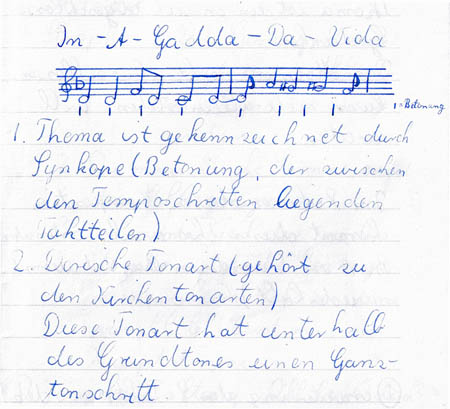 In - A - Gadda - Da - Vida
| = Betonung
1. Thema ist gekennzeichnet durch
Synkope (Betonung, der zwischen
den Temposchritten liegenden
Taktteilen)
2. Dorische Tonart (gehört zu
den Kirchentonarten)
Diese Tonart hat unterhalb
des Grundtones einen Ganz-
tonschritt.